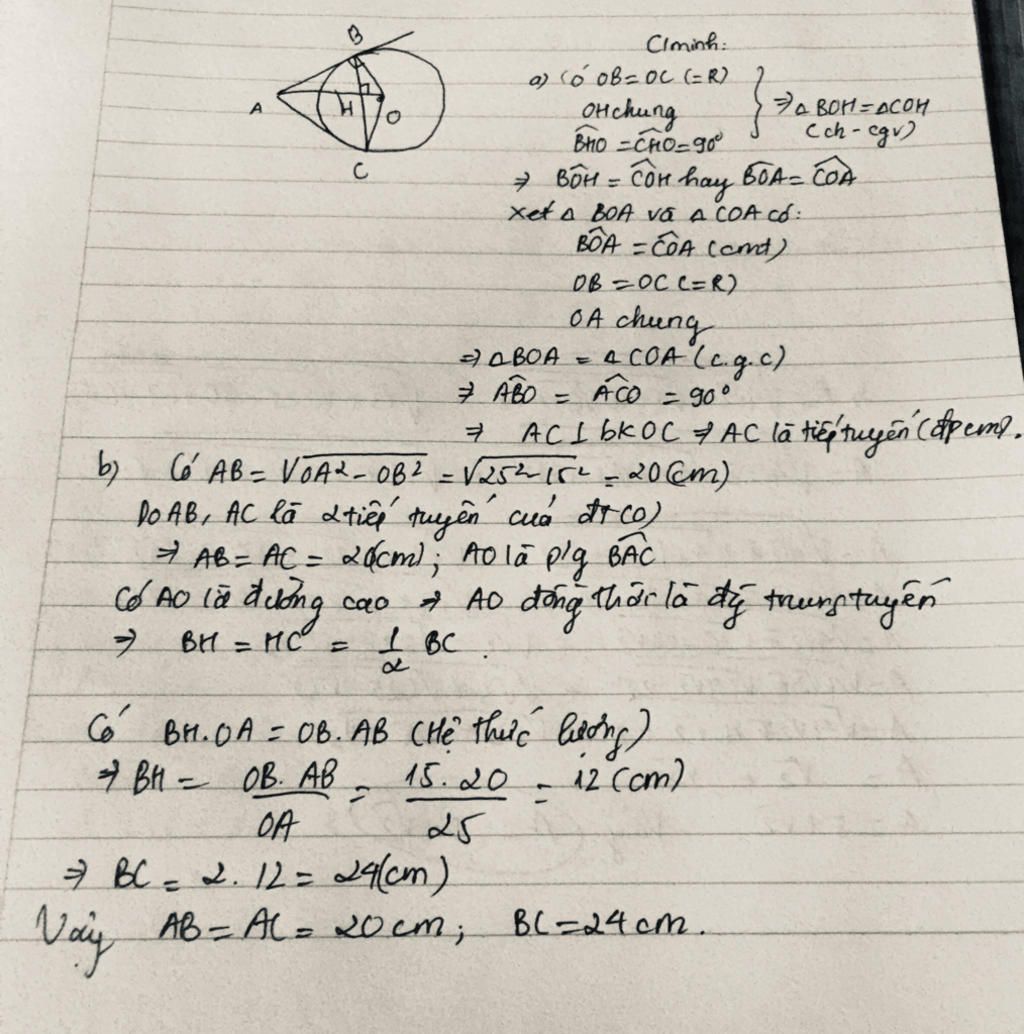 B
A
H
O
C
C/minh:
a) Có OB = OC (=R)
OH chung
⇒ △BOH = △COH
BHO = CHO = 90°
(ch - cgv)
⇒ BOH = COH hay BOA = COA
Xét △ BOA và △ COA có:
BOA = COA (cmt)
OB = OC (=R)
OA chung
⇒ △BOA = △COA (c.g.c)
⇒ ABO = ACO = 90°
⇒ AC ⊥ bk OC ⇒ AC là tiếp tuyến (đpcm).
b) Có AB = √OA² - OB² = √25² - 15² = 20 (cm)
Do AB, AC là 2 tiếp tuyến của đt (O)
⇒ AB = AC = 20 (cm); AO là p/g BAC
Có AO là đường cao ⇒ AO đồng thời là đg trung tuyến
⇒ BH = HC = 1/2 BC.
Có BH.OA = OB.AB (Hệ thức lượng)
⇒ BH = OB.AB/OA = 15.20/25 = 12 (cm)
⇒ BC = 2.12 = 24 (cm)
Vậy AB = AC = 20 cm; BC = 24 cm.